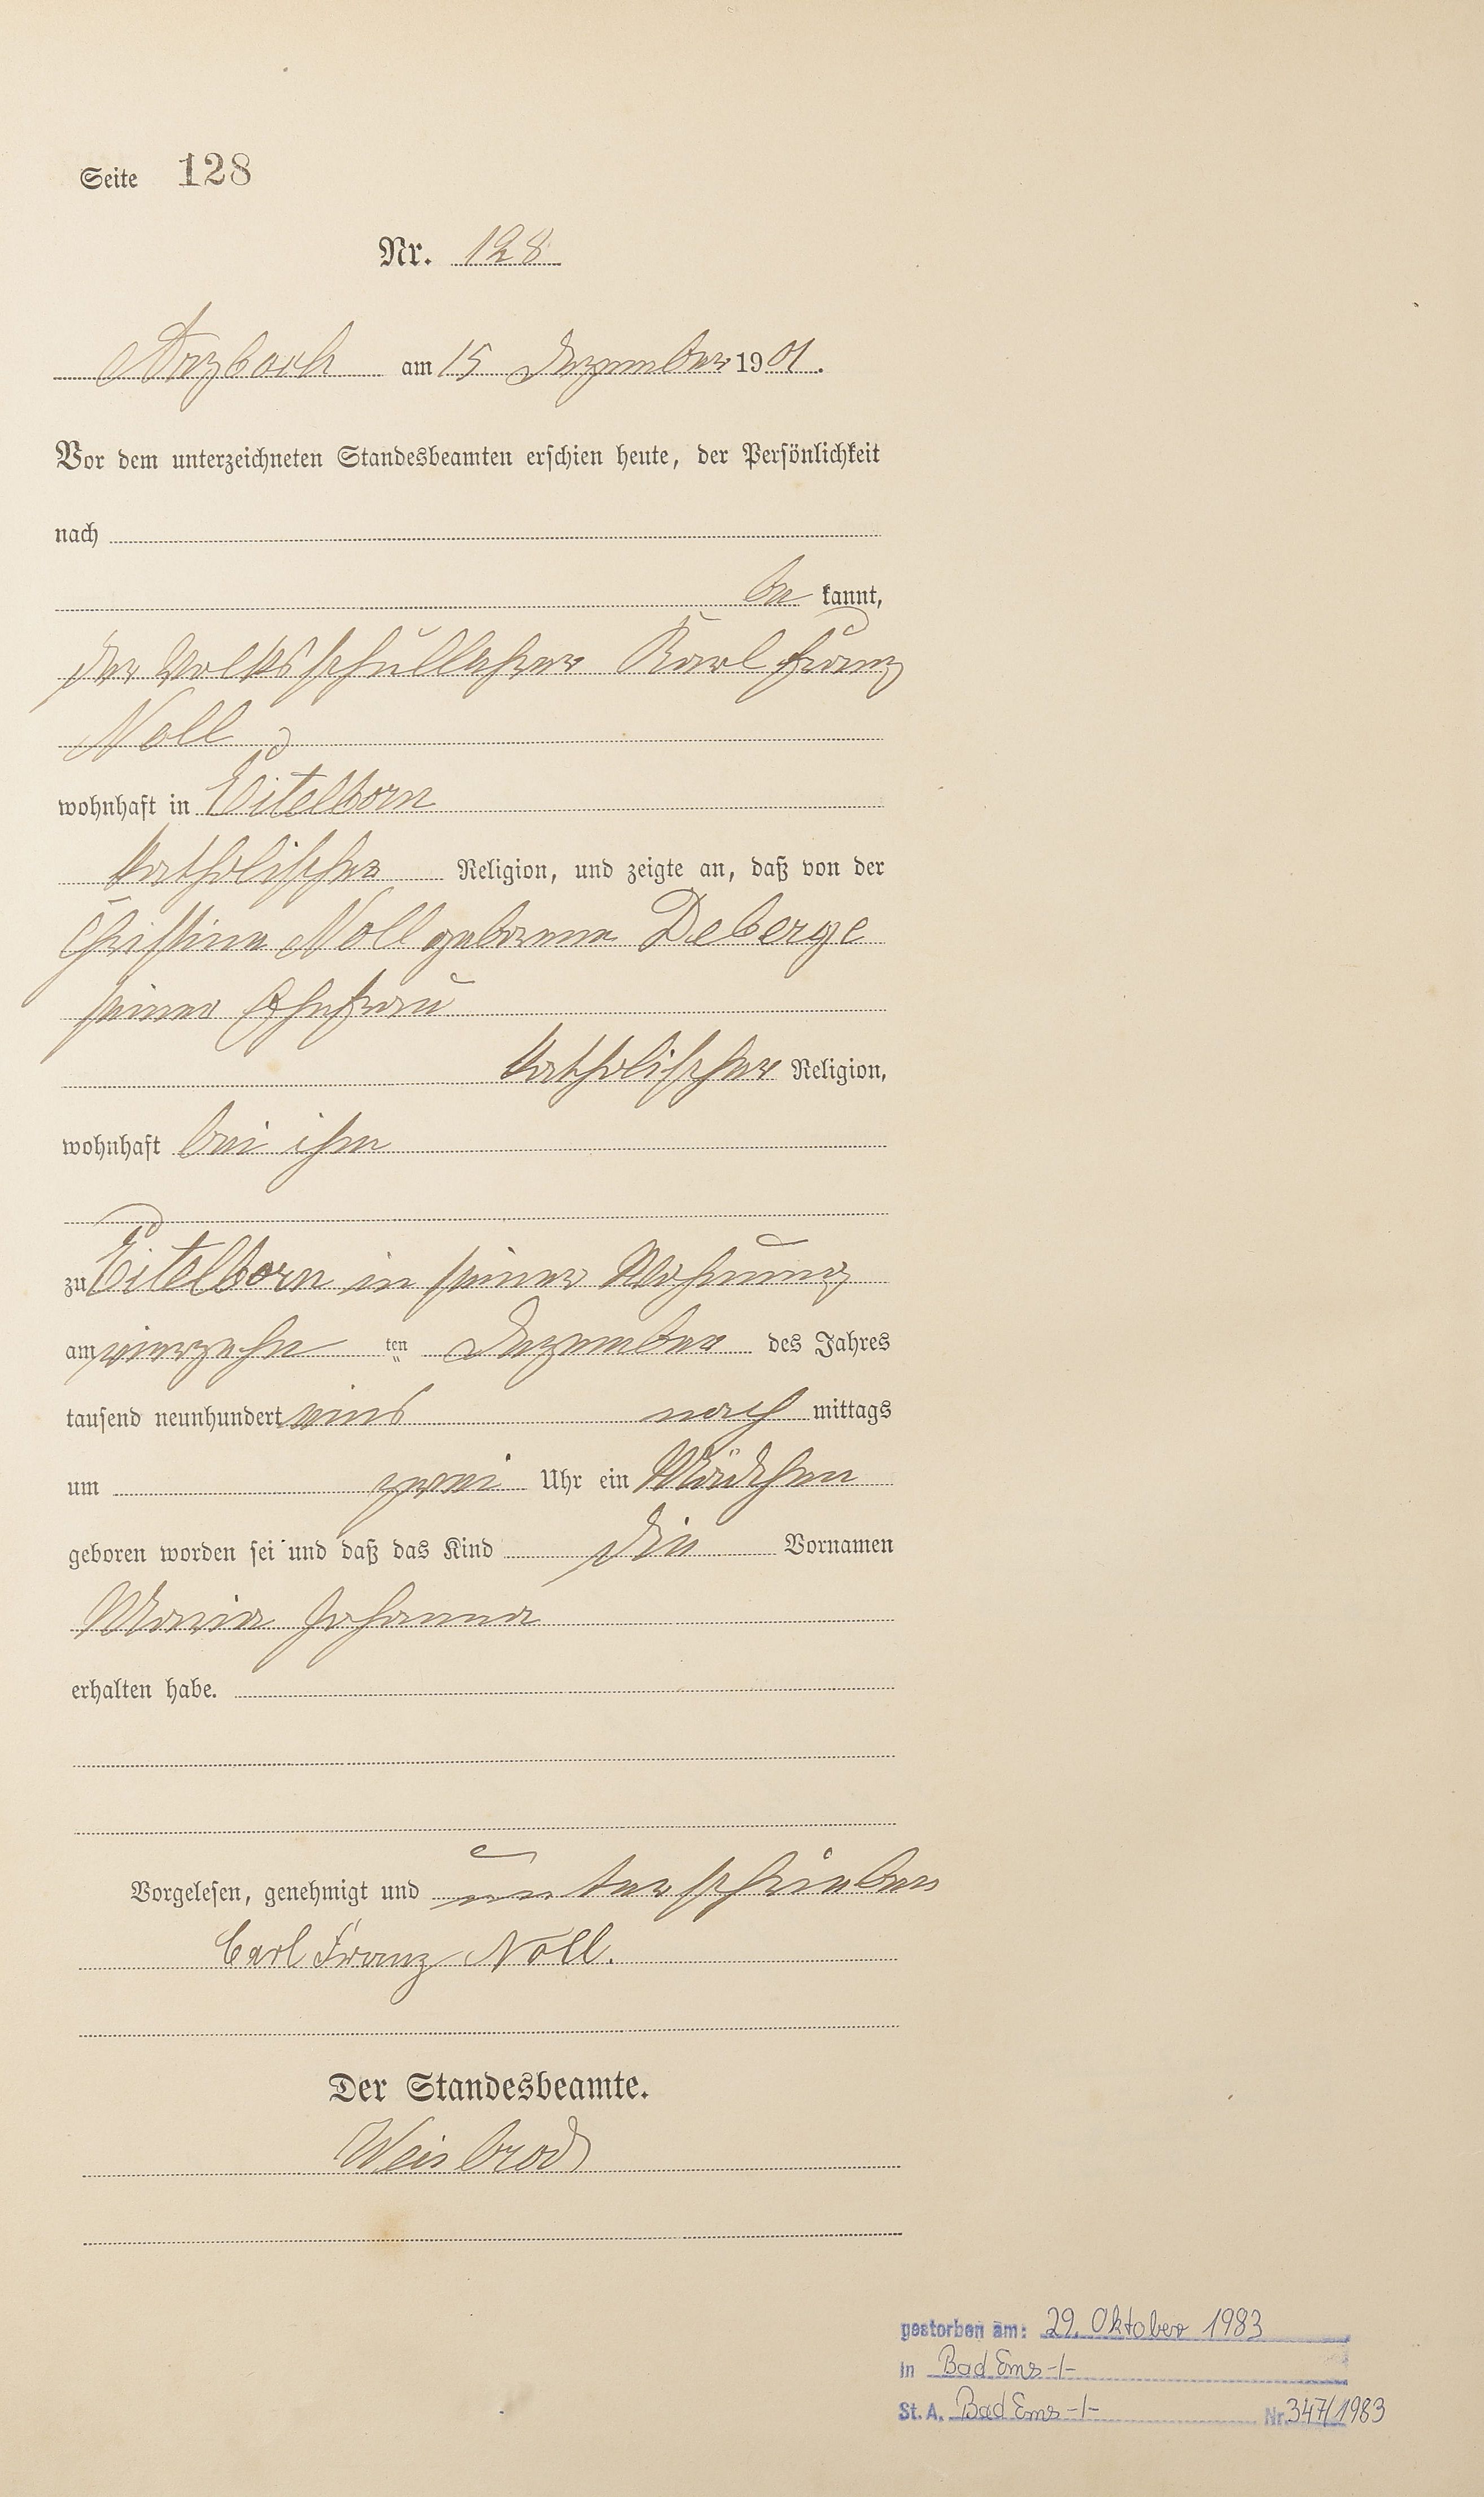 Seite 128
Nr. 128
Arzbach am 15 Dezember 1901.
Vor dem unterzeichneten Standesbeamten erschien heute, der Persönlichkeit
nach
be kannt,
der Volksschullehrer Karl Franz
Noll
wohnhaft in Eitelborn
katholischer Religion, und zeigte an, daß von der
Christina Noll geborene Deberge
seiner Ehefrau
katholischer Religion,
wohnhaft bei ihm
zu Eitelborn in seiner Wohnung
am vierzehn ten Dezember des Jahres
tausend neunhundert eins nach mittags
um zwei Uhr ein Mädchen
geboren worden sei und daß das Kind die Vornamen
Maria Johanna
erhalten habe.
Vorgelesen, genehmigt und unterschrieben
Carl Franz Noll.
Der Standesbeamte.
Weisbrod
gestorben am: 29. Oktober 1983
in Bad Ems -/-
St. A. Bad Ems -/- Nr. 347/1983